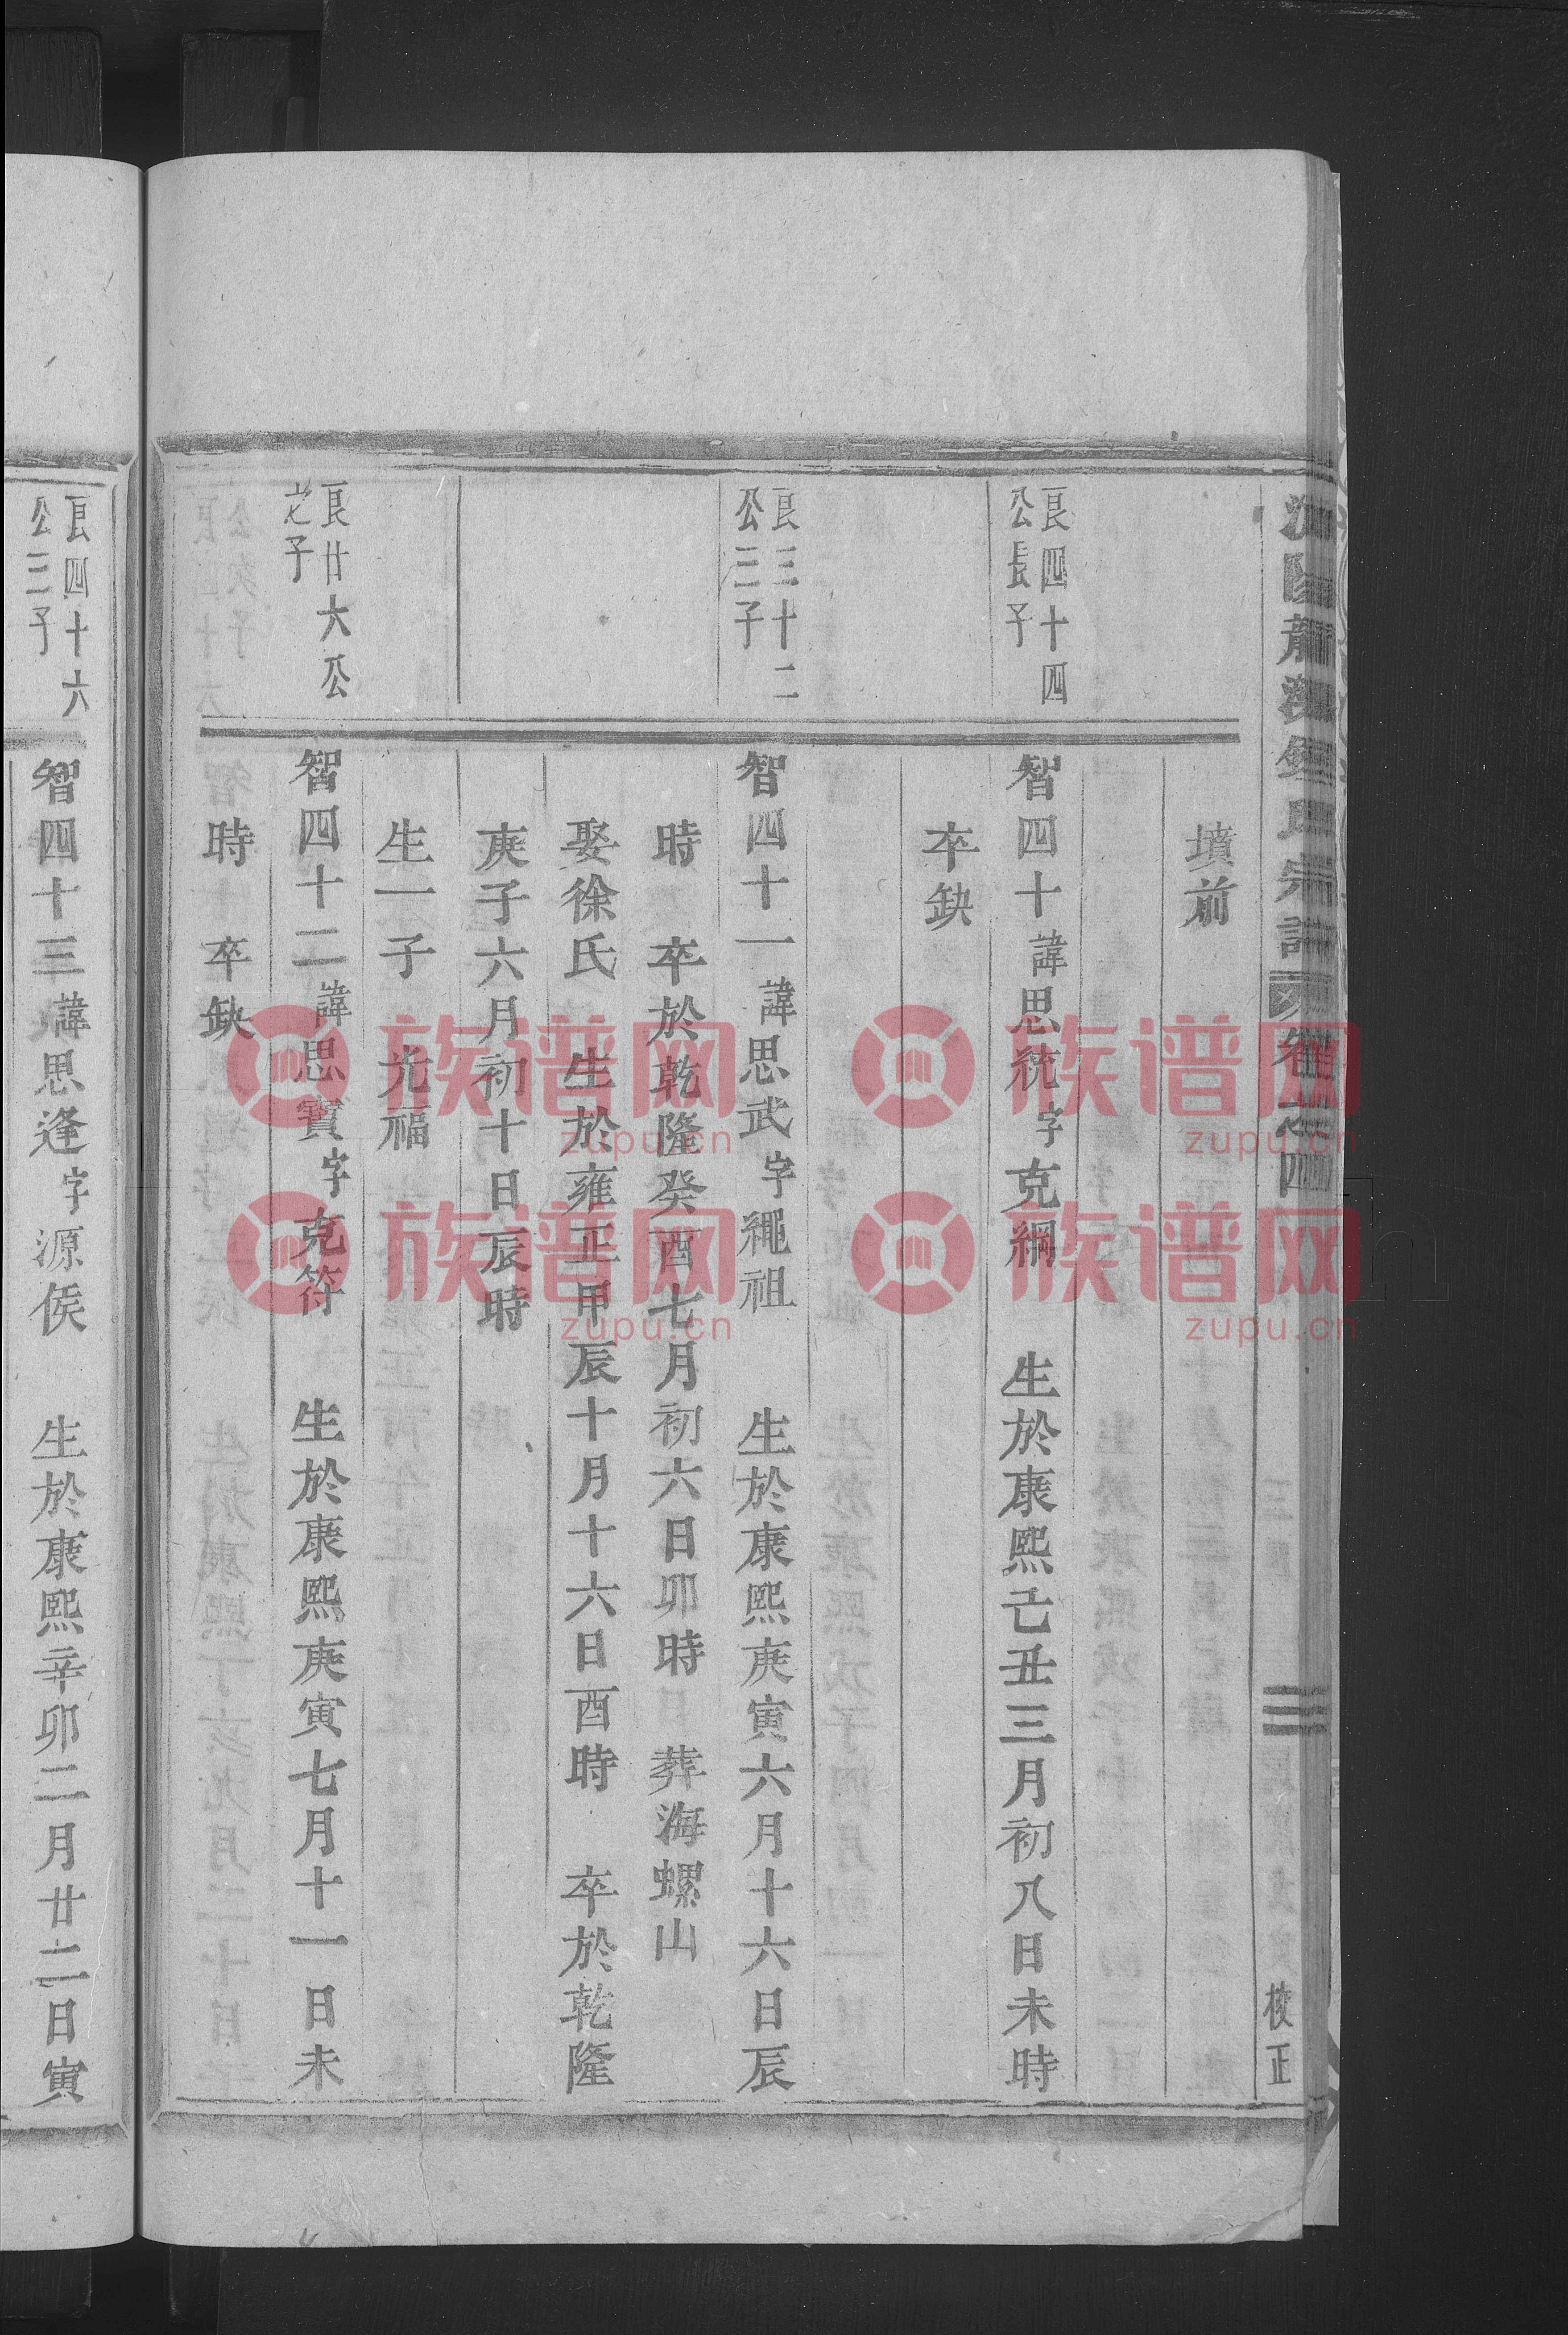 龍溪鍾氏宗譜 卷之四 三 校正
墳前
良四十四
公長子
智四十 諱思統 字克綱 生於康熙己丑三月初八日未時
卒缺
良三十二
公三子
智四十一 諱思武 字繩祖 生於康熙庚寅六月十六日辰
時 卒於乾隆癸酉七月初六日卯時 葬海螺山
娶徐氏 生於雍正甲辰十月十六日酉時 卒於乾隆
庚子六月初十日辰時
生一子 光福
良廿大公
之子
智四十二 諱思寳 字克符 生於康熙庚寅七月十一日未
時 卒缺
良四十六
公三子
智四十三 諱思逢 字源侯 生於康熙辛卯二月廿二日寅
族谱网
zupu.cn
族谱网
zupu.cn
族谱网
zupu.cn
族谱网
zupu.cn